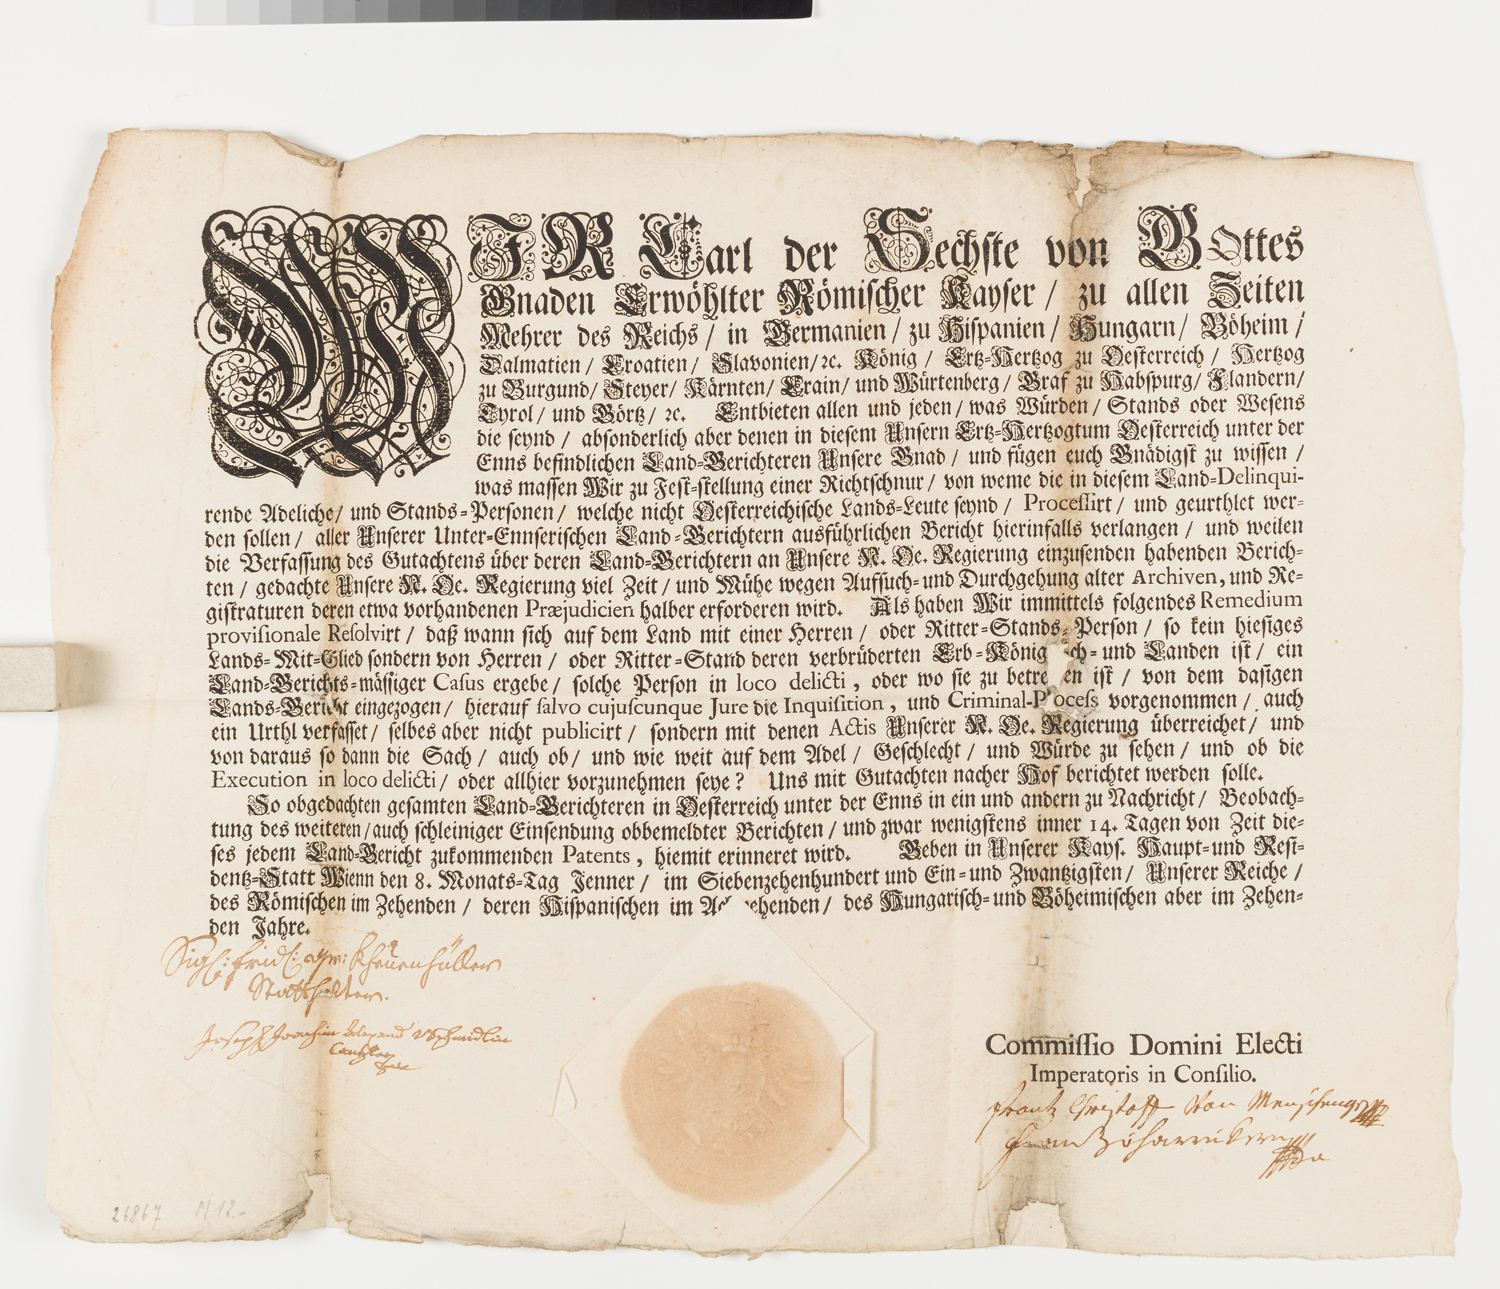 WIR Carl der Sechste von GOttes
Gnaden Erwöhlter Römischer Kayser / zu allen Zeiten
Mehrer des Reichs / in Germanien / zu Hispanien / Hungarn / Böheim /
Dalmatien / Croatien / Slavonien / ꝛc. König / Ertz-Hertzog zu Oesterreich / Hertzog
zu Burgund / Steyer / Kärnten / Crain / und Würtenberg / Graf zu Habspurg / Flandern /
Tyrol / und Görtz / ꝛc. Entbieten allen und jeden / was Würden / Stands oder Wesens
die seynd / absonderlich aber denen in diesem Unsern Ertz-Hertzogtum Oesterreich unter der
Enns befindlichen Land-Gerichteren Unsere Gnad / und fügen euch Gnädigst zu wissen /
was massen Wir zu Fest-stellung einer Richtschnur / von weme die in diesem Land-Delinqui-
rende Adeliche / und Stands-Personen / welche nicht Oesterreichische Lands-Leute seynd / Processirt / und geurthlet wer-
den sollen / aller Unserer Unter-Ennserischen Land-Gerichtern ausführlichen Bericht hierinfalls verlangen / und weilen
die Verfassung des Gutachtens über deren Land-Gerichtern an Unsere N. Oe. Regierung einzusenden habenden Berich-
ten / gedachte Unsere N. Oe. Regierung viel Zeit / und Mühe wegen Aufsuch- und Durchgehung alter Archiven, und Re-
gistraturen deren etwa vorhandenen Præjudicien halber erforderen wird. Als haben Wir immittels folgendes Remedium
provisionale Resolvirt / daß wann sich auf dem Land mit einer Herren / oder Ritter-Stands-Person / so kein hiesiges
Lands-Mit-Glied sondern von Herren / oder Ritter-Stand deren verbrüderten Erb-König ch- und Landen ist / ein
Land-Gerichts-mässiger Casus ergebe / solche Person in loco delicti, oder wo sie zu betre en ist / von dem dasigen
Lands-Gericht eingezogen / hierauf salvo cujuscunque Jure die Inquisition, und Criminal-Process vorgenommen / auch
ein Urthl verfasset / selbes aber nicht publicirt / sondern mit denen Actis Unserer N. Oe. Regierung überreichet / und
von daraus so dann die Sach / auch ob / und wie weit auf dem Adel / Geschlecht / und Würde zu sehen / und ob die
Execution in loco delicti / oder allhier vorzunehmen seye? Uns mit Gutachten nacher Hof berichtet werden solle.
So obgedachten gesamten Land-Gerichteren in Oesterreich unter der Enns in ein und andern zu Nachricht / Beobach-
tung des weiteren / auch schleiniger Einsendung obbemeldter Berichten / und zwar wenigstens inner 14. Tagen von Zeit die-
ses jedem Land-Gericht zukommenden Patents, hiemit erinneret wird. Geben in Unserer Kays. Haupt- und Resi-
dentz-Statt Wienn den 8. Monats-Tag Jenner / im Siebenzehenhundert und Ein- und Zwantzigsten / Unserer Reiche /
des Römischen im Zehenden / deren Hispanischen im Ach ehenden / des Hungarisch- und Böheimischen aber im Zehen-
den Jahre.
Sigf: Frid: Gr: Khevenhüller
Statthalter.
Joseph Joachim
Cantzler
Commissio Domini Electi
Imperatoris in Consilio.
Frantz Christoff Von
26867 M 12.-